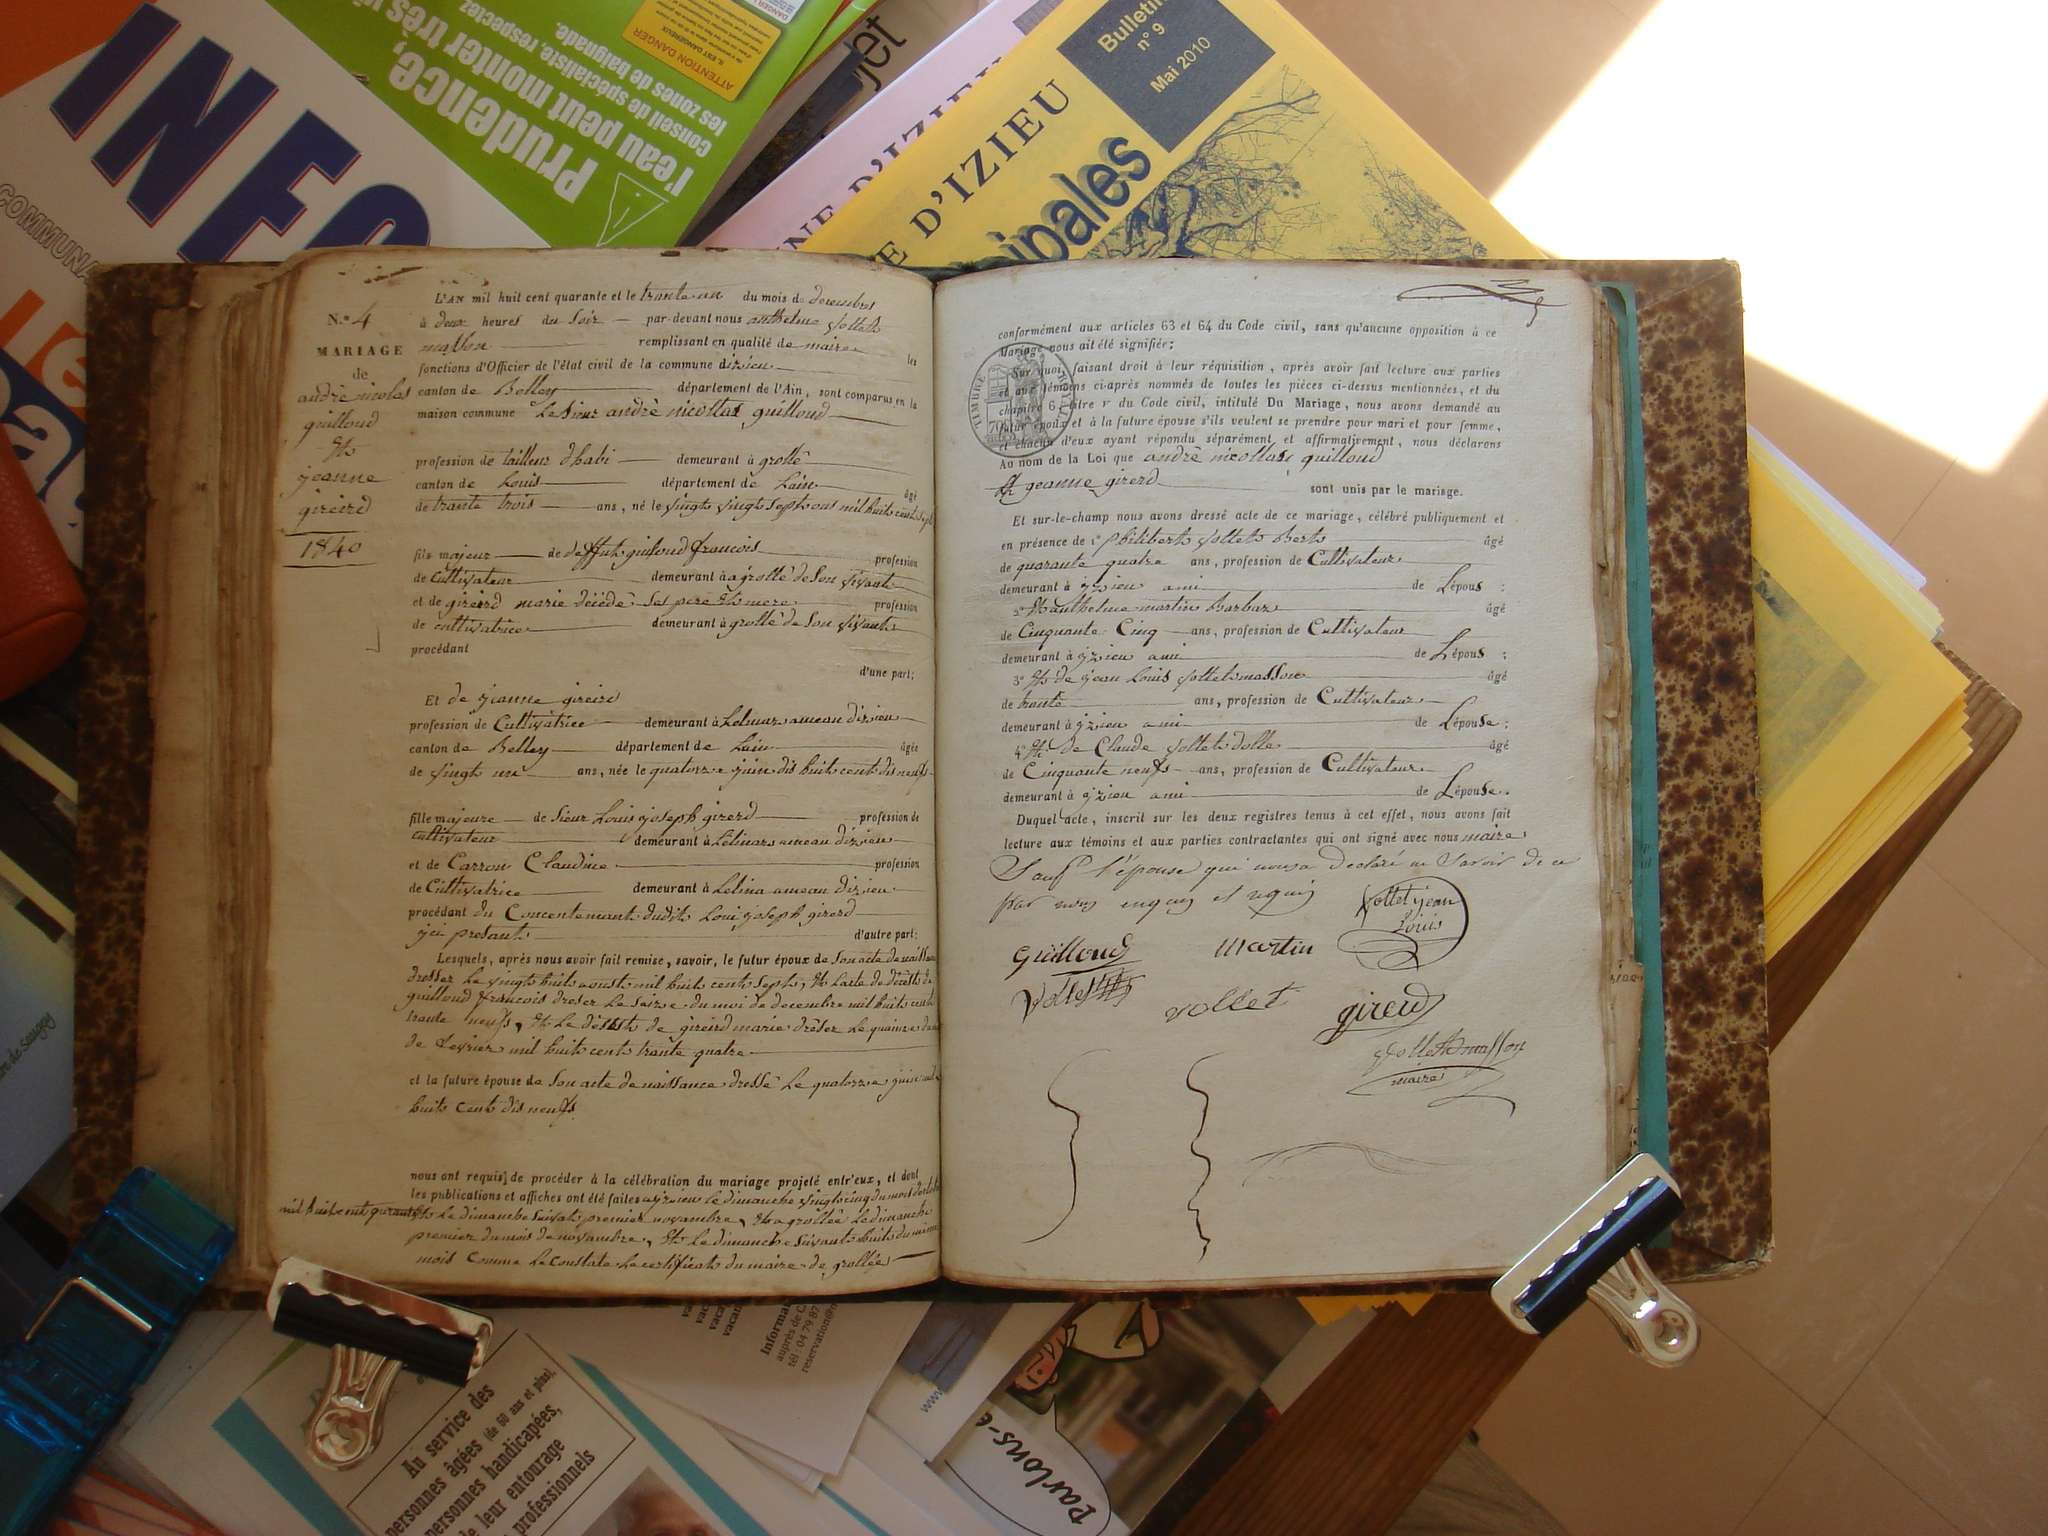 INFO
Prudence,
l'eau peut monter très vi
conseil de spécialiste, respectez
les zones de baignade.
ATTENTION DANGER
jet
Bulletin
n° 9
Mai 2010
NE D'IZIEU
E D'IZIEU
cipales
N.º 4
MARIAGE
de
andrè nicolas
guilloud
Et
jeanne
gireird
1840
L'AN mil huit cent quarante et le trante un du mois de decembre
à deux heures du Soir par-devant nous anthelme vollet
masson remplissant en qualité de maire les
fonctions d'Officier de l'état civil de la commune dizieu
canton de Belley département de l'Ain, sont comparus en la
maison commune Le Sieur andrè nicollas guilloud
profession de tailleur dhabi demeurant à grolle
canton de Louis département de Lain âgé
de trante trois ans, né le vingt vingt sept ous mil huit cent sept
fils majeur de deffut guiloud francois profession
de Cultivateur demeurant à a grollé de Son vivant
et de gireird marie décédé Ses pere et mere profession
de cultivatrice demeurant à grollé de Son vivant
procédant
d'une part;
Et de jeanne gireird
profession de Cultivatrice demeurant à Lelinas ameau dizieu
canton de Belley département de Lain âgée
de vingt un ans, née le quatorze juin dis huit cent dis neuf
fille majeure de Sieur Louis joseph girerd profession de
cultivateur demeurant à Lelinas ameau dizieu
et de Carron Claudine profession
de Cultivatrice demeurant à Lelina ameau dizieu
procédant du Concentement dudit Loui joseph girerd
yci presant d'autre part;
Lesquels, après nous avoir fait remise, savoir, le futur époux de Son acte de naissan
dresser Le vingt huit aoust mil huit cent sept, Et Lacte de décest de
guilloud francois dreser Le Saize du moi de decembre mil huit cent
trante neuf, Et Le décest de gireird marie drèser Le quainze du
de fevrier mil huit cent trante quatre
et la future épouse de Son acte de naissance dressé Le quatorze juin mil
huit cent dis neuf
nous ont requis de procéder à la célébration du mariage projeté entr'eux, et dont
les publications et affiches ont été faites a yzieu Le dimanche vingt cinq du mois doctobre
mil huit cent quarante Et Le dimanche Suivant premier novambre, Et a grollée Le dimanche
premier du mois de novambre, Et Le dimanche Suivant huit du même
mois Comme La Constate Le certificat du maire de grollée
conformément aux articles 63 et 64 du Code civil, sans qu'aucune opposition à ce
Mariage nous ait été signifiée;
Sur quoi, faisant droit à leur réquisition, après avoir fait lecture aux parties
et aux témoins ci-après nommés de toutes les pièces ci-dessus mentionnées, et du
chapitre 6, titre V du Code civil, intitulé Du Mariage, nous avons demandé au
futur époux et à la future épouse s'ils veulent se prendre pour mari et pour femme,
et chacun d'eux ayant répondu séparément et affirmativement, nous déclarons
Au nom de la Loi que andrè nicollas guilloud
Et jeanne girerd sont unis par le mariage.
TIMBRE ROYAL
Et sur-le-champ nous avons dressé acte de ce mariage, célébré publiquement et
en présence de 1º Philibert vollet Berts âgé
de quarante quatre ans, profession de Cultivateur
demeurant à yzieu ami de Lépous ;
2º Et anthelme martin Barbaz âgé
de Cinquante Cinq ans, profession de Cultivateur
demeurant à yzieu ami de Lépous ;
3º Et de jean Louis vollet masson âgé
de trante ans, profession de Cultivateur
demeurant à yzieu ami de Lépouse ;
4º Et de Claude vollet dolle âgé
de Cinquante neuf ans, profession de Cultivateur
demeurant à yzieu ami de Lépouse.
Duquel acte, inscrit sur les deux registres tenus à cet effet, nous avons fait
lecture aux témoins et aux parties contractantes qui ont signé avec nous maire
Sauf l'épouse qui nous a declaré ne Savoir de ce
par nous enquis et requis
vollet jean
Louis
Guilloud
martin
vollet
vollet
girerd
vollet masson
maire
Au service des
personnes âgées (de 60 ans et plus),
personnes handicapées,
de leur entourage
professionnels
Informa
auprès de C
tél : 04 79 87
reservation@
www
Parlons-e